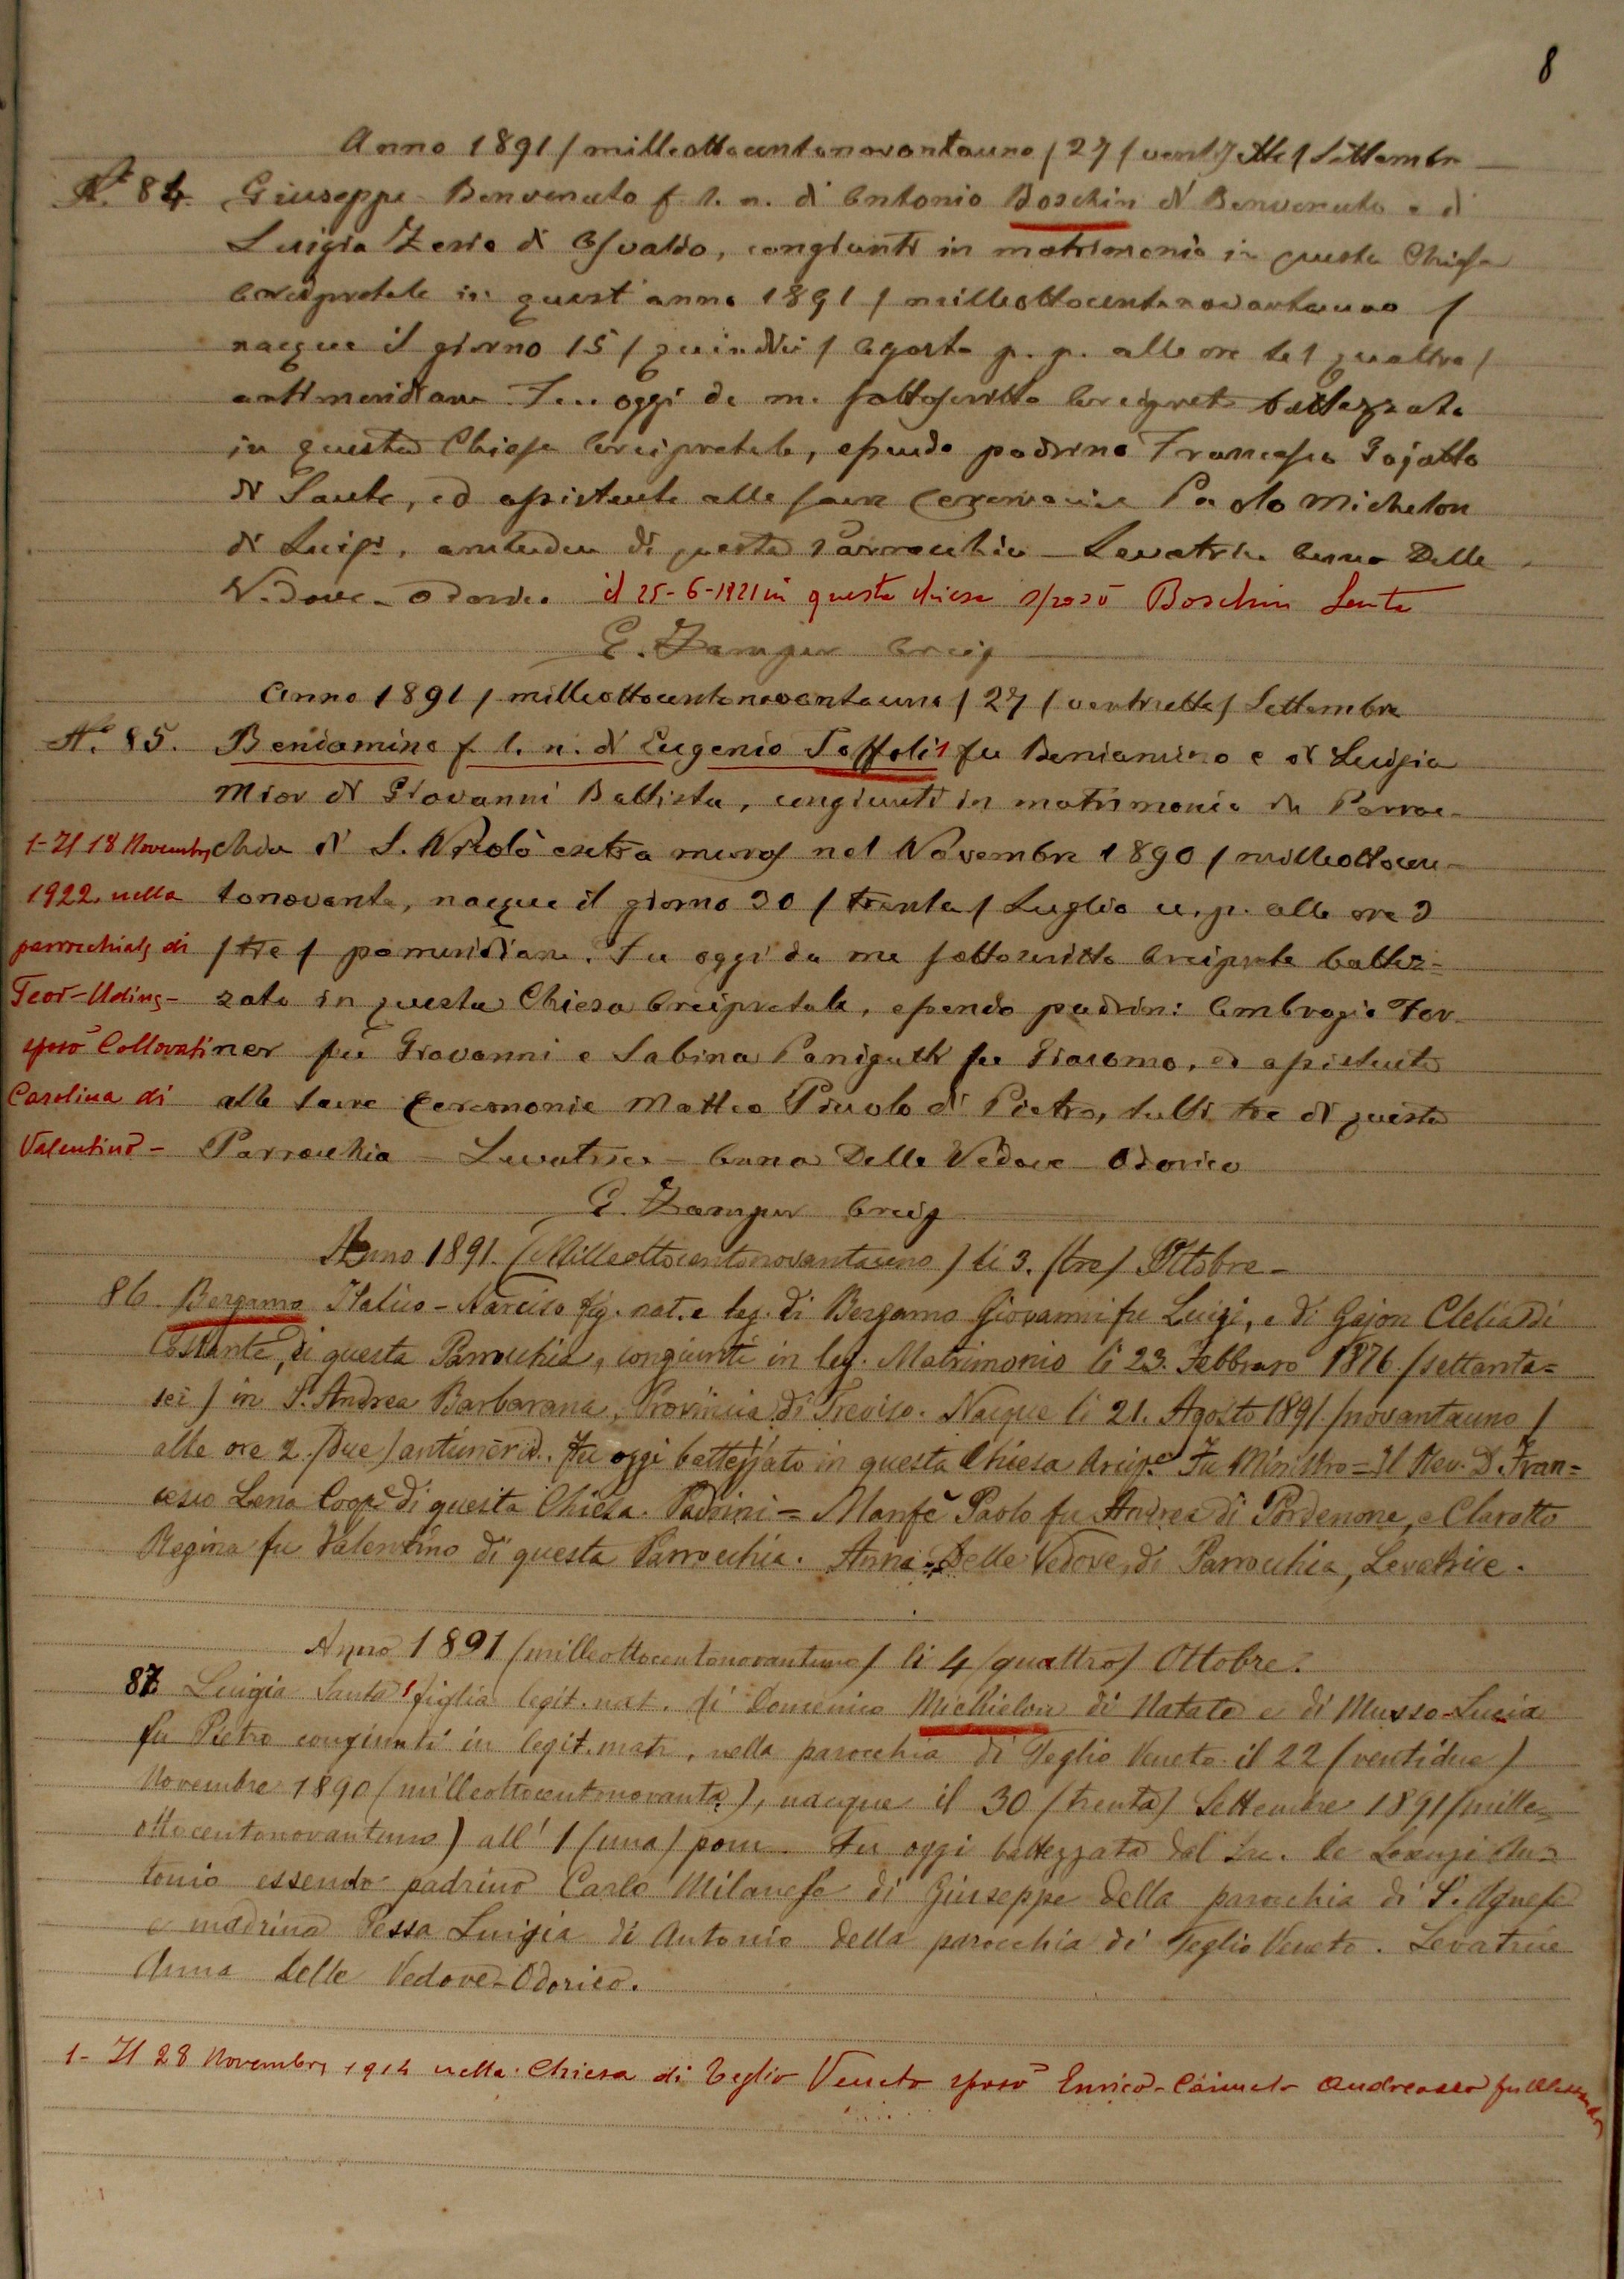 8
Anno 1891 / milleottocentonovantauno / 27 / ventisette / Settembre
N.º 84. Giuseppe Benvenuto f. l. n. di Antonio Boschin di Benvenuto e di
Luigia Zeria di Osvaldo, congiunti in matrimonio in questa Chiesa
Arcipretale in quest'anno 1891 / milleottocentonovantauno /
nacque il giorno 15 / quindici / Agosto p. p. alle ore 4 / quattro /
antimeridiane. Fu oggi da me sottoscritto Arciprete battezzato
in questa Chiesa Arcipretale, essendo padrino Francesco
di Sante, ed assistente alle sacre Ceremonie Paolo Michelon
di Luigi, amendue di questa Parrocchia – Levatrice Anna Delle
Vedove – Odorico il 25-6-1921 in questa chiesa sposò Boschin Santa
G. Zamper Arcip
Anno 1891 / milleottocentonovantauno / 27 / ventisette / Settembre
N.º 85. Beniamino f. l. n. di Eugenio Toffoli 1 fu Beniamino e di Luigia
Mior di Giovanni Battista, congiunti in matrimonio in Parroc-
chia di S. Nicolò extra muros nel Novembre 1890 / milleottocen-
tonovanta, nacque il giorno 30 / trenta / Luglio u. p. alle ore 3
/ tre / pomeridiane. Fu oggi da me sottoscritto Arciprete battez=
zato in questa Chiesa Arcipretale, essendo padrini Ambrogio For-
ner fu Giovanni e Sabina Panigutti fu Giacomo, ed assistente
alle sacre Ceremonie Matteo Piccolo di Pietro, tutti tre di questa
Parrocchia – Levatrice – Anna Delle Vedove Odorico
G. Zamper Arcip
1- Il 18 Novembre
1922 nella
parrocchiale di
Teor – Udine –
sposò Collovati
Carolina di
Valentino –
Anno 1891. / Milleottocentonovantauno / li 3. / tre / Ottobre –
86. Bergamo Italico – Narciso fig. nat. e leg. di Bergamo Giovanni fu Luigi, e di Gajon Clelia di
Costante, di questa Parrochia, congiunti in leg. Matrimonio li 23. Febbraro 1876. / settanta=
sei / in S. Andrea Barbarana, Provincia di Treviso. Nacque li 21. Agosto 1891. / novantauno /
alle ore 2. / due / antimerid. Fu oggi battezzato in questa Chiesa Arcip.e Fu Ministro = Il Rev. D. Fran=
cesco Lena Coop.e di questa Chiesa. Padrini = Manfè Paolo fu Andrea di Pordenone, e Clarotto
Regina fu Valentino di questa Parrochia. Anna Delle Vedove, di Parrochia, Levatrice.
Anno 1891 / milleottocentonovantuno / li 4 / quattro / Ottobre.
87. Luigia Santa 1 figlia legit. nat. di Domenico Michielon di Natale e di Musso Lucia
fu Pietro congiunti in legit. matr. nella parocchia di Teglio Veneto il 22 / ventidue )
Novembre 1890 / milleottocentonovanta ), nacque il 30 / trenta / Settembre 1891 / mille=
ottocentonovantuno ) all' 1 / una / pom. Fu oggi battezzata dal De Lorenzi An=
tonio essendo padrino Carlo Milanese di Giuseppe della parocchia di S. Agnese
e madrina Tessa Luigia di Antonio della parocchia di Teglio Veneto. Levatrice
Anna Delle Vedove – Odorico.
1- Il 28 Novembre 1914 nella Chiesa di Teglio Veneto sposò Enrico – Carmelo fu Alessandro